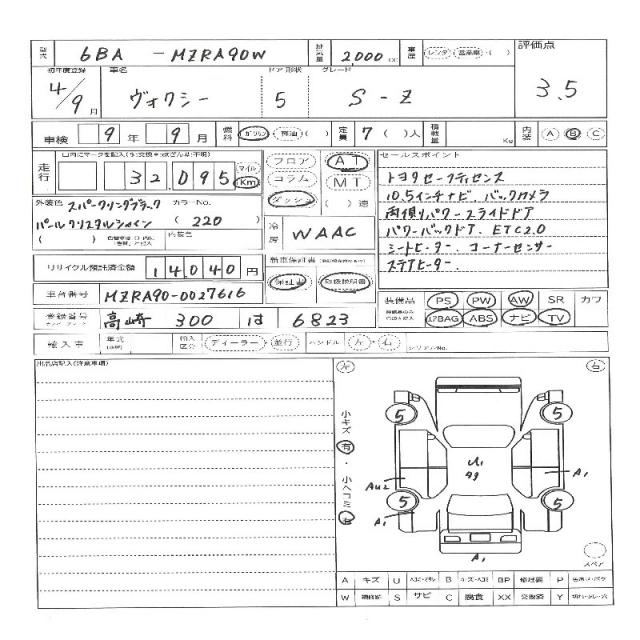 型式 6BA-MZRA90W 排気量 2,000 cc 車歴 レンタ 営業車 ( ) 評価点
初年度登録 車名 ドア形状 グレード
4/9月 ヴォクシー 5 S-Z 3.5
車検 9年 9月 燃料 ガソリン・軽油( ) 定員 7( )人 積載量 Kg 内装 A B C
走行 マイル Km 32,095 フロア コラム ダッシュ AT MT ( )速
セールスポイント
トヨタセーフティセンス
10.5インチナビ、バックカメラ
両側パワースライドドア
パワーバックドア、ETC2.0
シートヒーター、コーナーセンサー
ステアヒーター、
外装色 スパークリングブラック カラーNo.
パールクリスタルシャイン (220)
( ) 内装色
冷房 WAAC
リサイクル預託済金額 14,040円
新車保証書 保証書 取扱説明書
車台番号 MZRA90-0027616
装備品 PS PW AW SR カワ
エアBAG ABS ナビ TV
登録番号 高崎 300 は 6823
輸入車 年式 輸入区分 ディーラー・並行 ハンドル 左・右 シリアルNo.
出品店記入(注意事項)
左 右
小キズ 有・小ヘコミ 有
5 5
U1
AU2 A1
5 5
A1
A1
スペア
A キズ U B BP P
W S サビ C 腐食 XX 交換済 Y